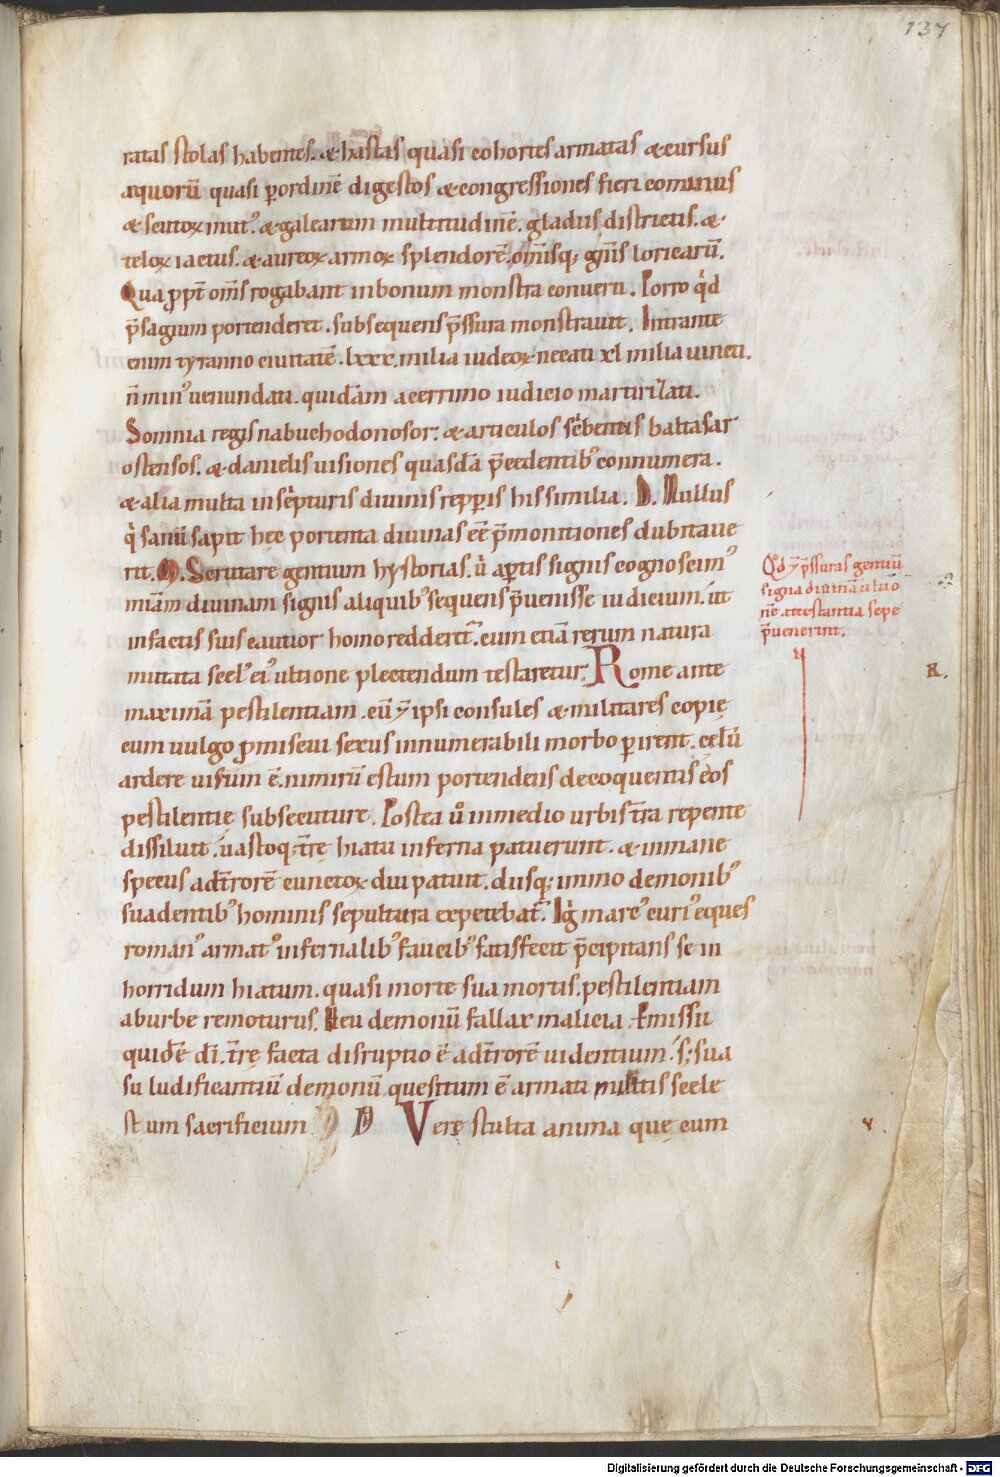 137
ratas stolas habentes. & hastas quasi cohortes armatas & cursus
aquorū quasi p̱ordinē digestos & congressiones fieri cominus
& scutoꝝ mutꝰ & galearum multitudinē. gladiis districtis. &
teloꝝ iactus. & aureoꝝ armoꝝ splendorē. om̄isq; gn̄is loricarū.
Qua pропt̄ om̄s rogabant inbonum monstra conuerti. Porro qͥd
p̄sagium portenderet. subsequens p̄ssura monstrauit. Intrante
enim tyranno ciuitatē. lxxx. milia iudeoꝝ necati xl milia uincti.
n̄ minꝰ uenundati. quidam acerrimo iudicio martirizati.
Somnia regis nabuchodonosor: & articulos scͥbentis baltasar
ostensos. & danielis uisiones quasdā p̄cedentibꝰ connumera.
& alia multa in scͥpturis diuinis repp̱is his similia. D. Nullus
qͥ sanū sapit hęc portenta diuinas eē p̄monitiones dubitaue
rit. M. Scrutare gentium hystorias. uͥ ap̱tis signis cognoscimꝰ
Qd̄ ⁊ p̄ssuras gentiū
signa diuinā ultio
nē attestantia sepe
p̄uenerint.
miām diuinam signis aliquibꝰ sequens p̄uenisse iudicium. ut
infactis suis cautior homo redderet᷑. cum etiā rerum natura
mutata scelꝰ eiꝰ ultione plectendum testaretur. Rome ante
K.
maximā pestilentiam. cū ⁊ ipsi consules & militares copię
cum uulgo ꝓmiscui sexus innumerabili morbo p̱irent. celū
ardere uisum ē. nimirū estum portendens decoquentis eos
pestilentię subsecuture. Postea uͦ inmedio urbis t̄ra repente
dissiluit. uastoq; t̄rę hiatu inferna patuerunt. & inmane
specus adt̄rorē cunctoꝝ diu patuit. diisq; immo demonibꝰ
suadentibꝰ hominis sepultura expetebat᷑. Igͥ marcꝰ curiꝰ eques
romanꝰ armatꝰ infernalibꝰ faucibꝰ satisfecit p̄cipitans se in
horridum hiatum. quasi morte sua mortis. pestilentiam
aburbe remoturus. Heu demonū fallax malicia. Emissu
quidē dī. t̄rę facta disruptio ē adt̄rorē uidentium. s; sua
su ludificantiū demonū quesitum ē armati militis scele
stum sacrificium D Vere stulta anima quę cum
Digitalisierung gefördert durch die Deutsche Forschungsgemeinschaft - DFG